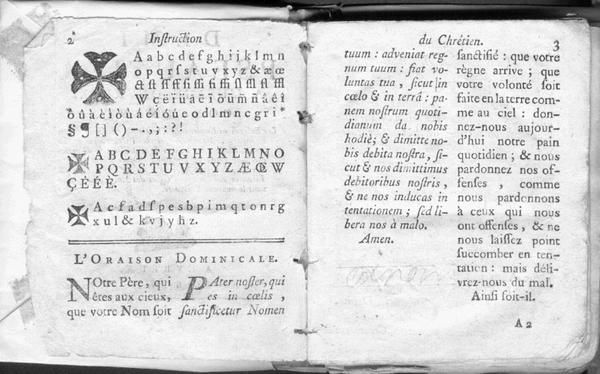 2 Instruction
A a b c d e f g h i j k l m n
o p q r ſ s t u v x y z & æ œ
W ç ë ï ü ã ẽ ĩ õ ũ m̃ ñ á é í
§ ¶ [ ] ( ) - . , ; : ? !
A B C D E F G H I J K L M N O
P Q R S T U V X Y Z Æ Œ W
Ç É È Ê.
A c f a d ſ p e s b p i m q t o n r g
x u l & k v j y h z.
L'ORAISON DOMINICALE.
NOtre Père, qui
êtes aux cieux,
que votre Nom ſoit
PAter noſter, qui
es in cœlis,
ſanctificetur Nomen
du Chrétien. 3
tuum : adveniat reg-
num tuum : fiat vo-
luntas tua, ſicut in
cœlo & in terrâ : pa-
nem noſtrum quoti-
dianum da nobis
hodiè; & dimitte no-
bis debita noſtra, ſi-
cut & nos dimittimus
debitoribus noſtris,
& ne nos inducas in
tentationem; ſed li-
bera nos à malo.
Amen.
ſanctifié : que votre
règne arrive; que
votre volonté ſoit
faite en la terre com-
me au ciel : don-
nez-nous aujour-
d'hui notre pain
quotidien; & nous
pardonnez nos of-
fenſes, comme
nous pardonnons
à ceux qui nous
ont offenſés, & ne
nous laiſſez point
ſuccomber en ten-
tation : mais déli-
vrez-nous du mal.
Ainſi ſoit-il.
A 2